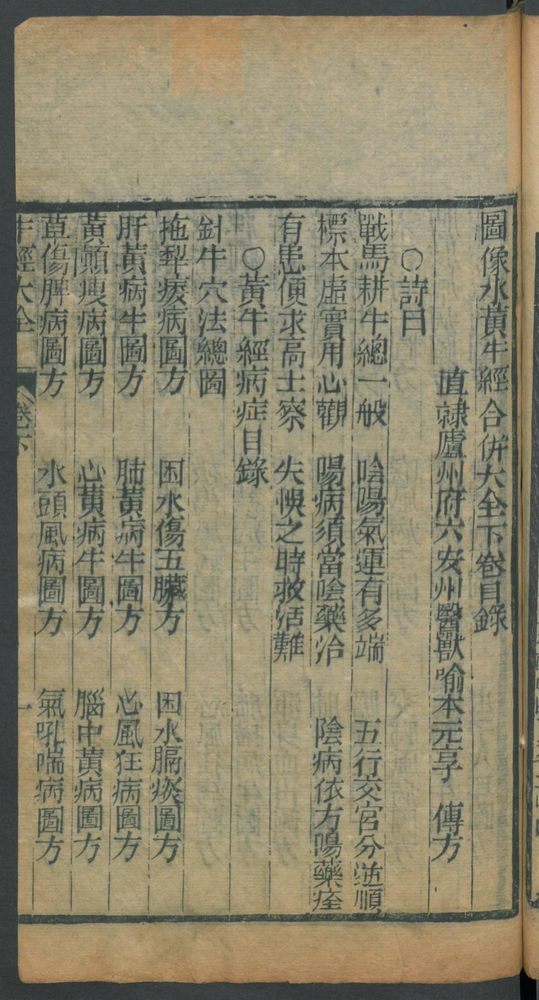 圖像水黃牛經合併大全下卷目錄
直隸廬州府六安州醫獸喻本元亨　傳方
○詩曰
戰馬耕牛總一般　陰陽氣運有多端　五行交宮分逆順
標本虛實用心觀　陽病須當陰藥治　陰病依方陽藥痊
有患便求高士察　失悞之時救活難
○黃牛經病症目錄
針牛穴法總圖
拖犁痠病圖方　困水傷五臟方　困水膈痰圖方
肝黃病牛圖方　肺黃病牛圖方　心風狂病圖方
黃顙瘦病圖方　心黃病牛圖方　腦中黃病圖方
草傷脾病圖方　水頭風病圖方　氣吼喘病圖方
牛經大全　卷下　一